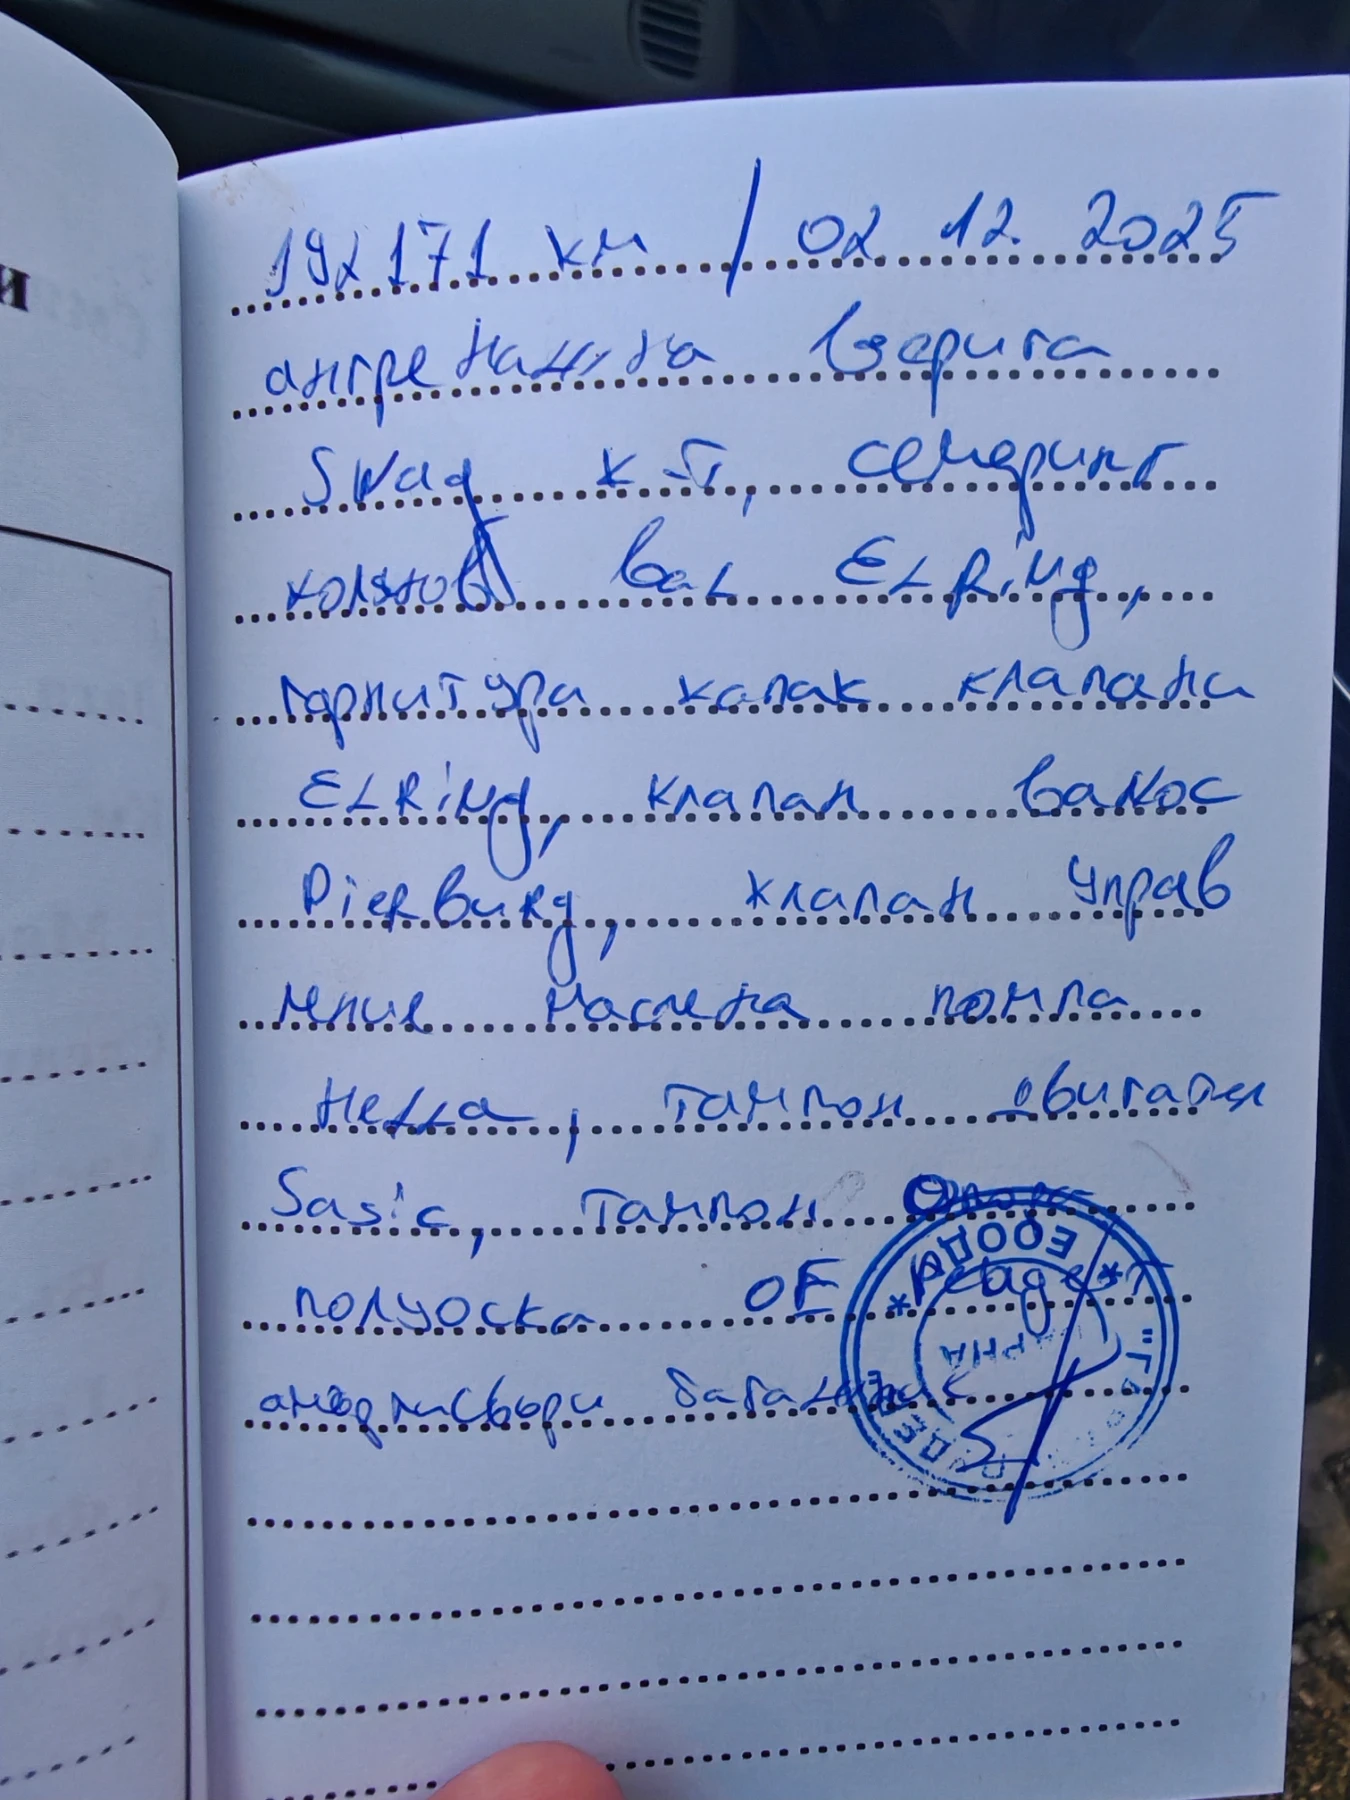 192171 км / 02.12.2025
ангренажна верига
Swag к-т, семеринг
колянов вал ELRing,
гарнитура капак клапани
ELRing, клапан ванос
PierBurg, клапан управ
ление маслена помпа
Hella, тампон двигател
Sasic, тампон опора
полуоска ОЕ Peugeot
амортисьори багажник
ЕООД
АРНА